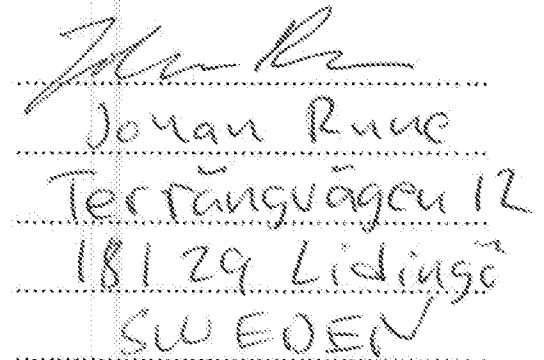 Johan Rune
Johan Rune
Terrängvägen 12
181 29 Lidingö
SWEDEN